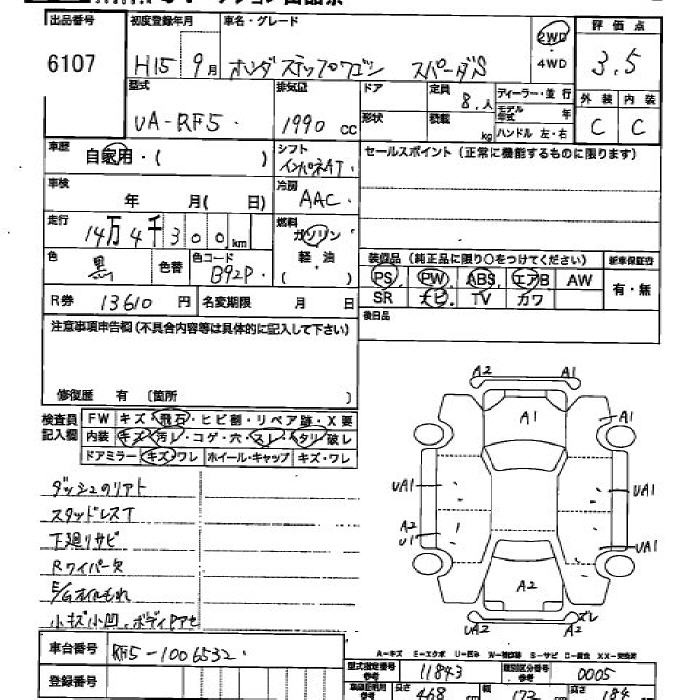 出品番号 初度登録年月 車名・グレード 2WD 評価点
6107 H15 9月 ホンダ ステップワゴン スパーダS 4WD 3.5
型式 排気量 ドア 定員 8.人 ディーラー・並行 外装 内装
UA-RF5. 1990 cc 形状 積載 kg モデル年式 年 C C
ハンドル 左・右
車歴 自家用・( ) シフト インパネAT. セールスポイント (正常に機能するものに限ります)
車検 年 月 ( 日) 冷房 AAC.
走行 14万4千300km 燃料 ガソリン
軽油
( )
装備品 (純正品に限り○をつけてください) 新車保証書
色 黒 色替 色コード B92P. PS PW ABS エアB AW 有・無
SR ナビ. TV カワ
R券 13610円 名変期限 月 日 後日品
注意事項申告欄 (不具合内容等は具体的に記入して下さい)
修復歴 有 〔箇所 〕
検査員記入欄 FW キズ・飛石・ヒビ割・リペア跡・X要
内装 キズ・汚レ・コゲ・穴・スレ・タリ・破レ
ドアミラー キズ・ワレ ホイール・キャップ キズ・ワレ
ダッシュのリアト
スタッドレスT
下廻りサビ
Rワイパー欠
E/Gオイルもれ
小キズ小凹、ボディPアセ
A2 A1
A1 A1
UA1 UA1
A2
U1 UA1
A2
UA2 A2 ズレ
A-キズ E-エクボ U-凹み W-補修跡 S-サビ C-腐食 XX-交換済
車台番号 RF5-1006532. 型式指定番号 参考 11843 類別区分番号 参考 0005
登録番号 長さ 468 cm 幅 172 cm 高さ 184